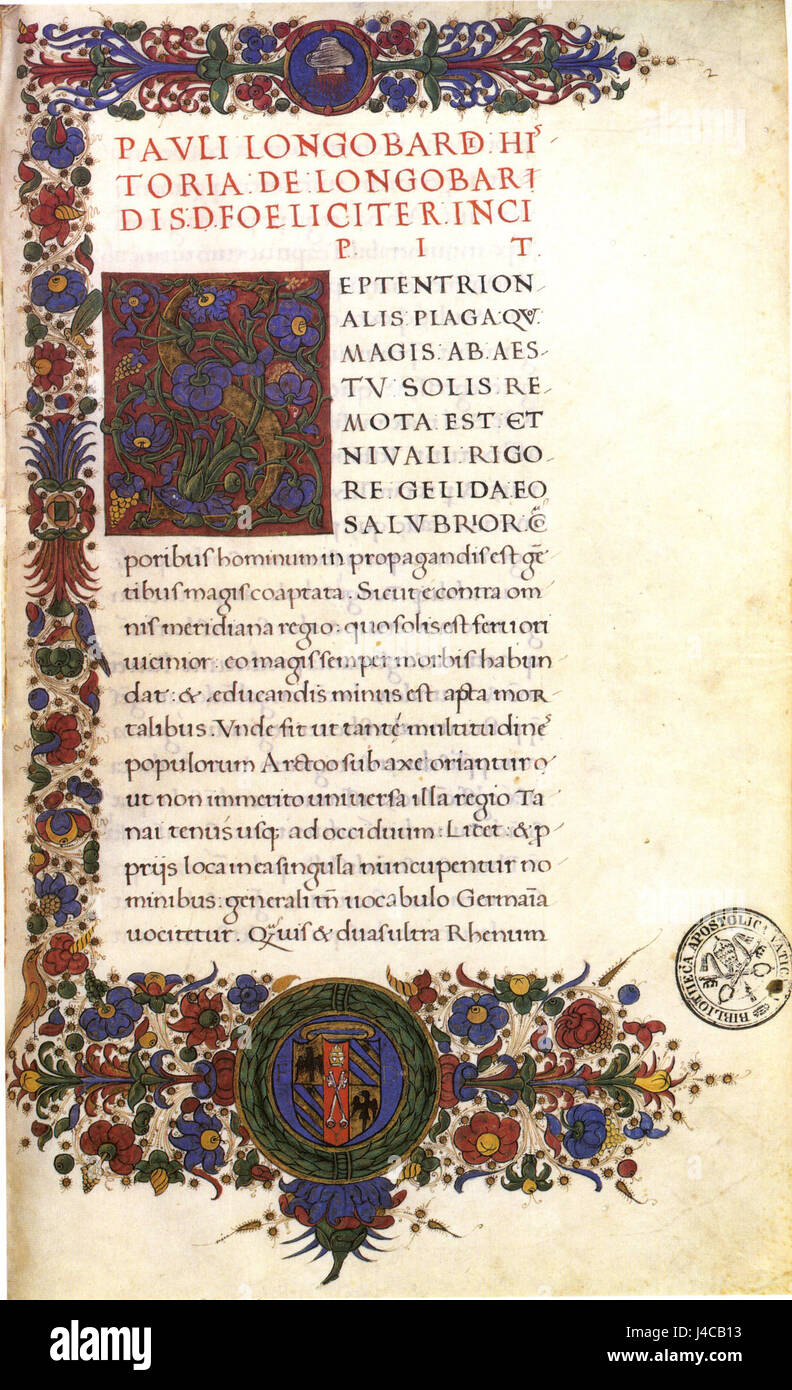 2
PAVLI LONGOBARDI: HIS
TORIA: DE LONGOBARI
DIS.D.FOELICITER.INCI
P I T.
SEPTENTRION
ALIS PLAGA QV.
MAGIS. AB. AES-
TV SOLIS. RE
MOTA EST. ET
NIVALI. RIGO
RE GELIDA. EO
SALVBRIOR. CO
poribus hominum in propagandis est gē
tibus magis coaptata. Sicut e contra om
nis meridiana regio: quo solis est feruori
uicinior: eo magis semper morbis habun
dat: &. educandis minus est apta mor
talibus. Vnde fit ut tantę multitudines
populorum Arctoo sub axe oriantur:
ut non immerito universa illa regio Ta
nai tenus usq; ad occiduum: Licet: & p
prijs loca in ea singula nuncupentur no
minibus: generali tn̄ uocabulo Germaīa
uocitetur. Quis & duas ultra Rhenum
BIBLIOTHECA APOSTOLICA VATIC
alamy
alamy
Image ID: J4CB13
www.alamy.com